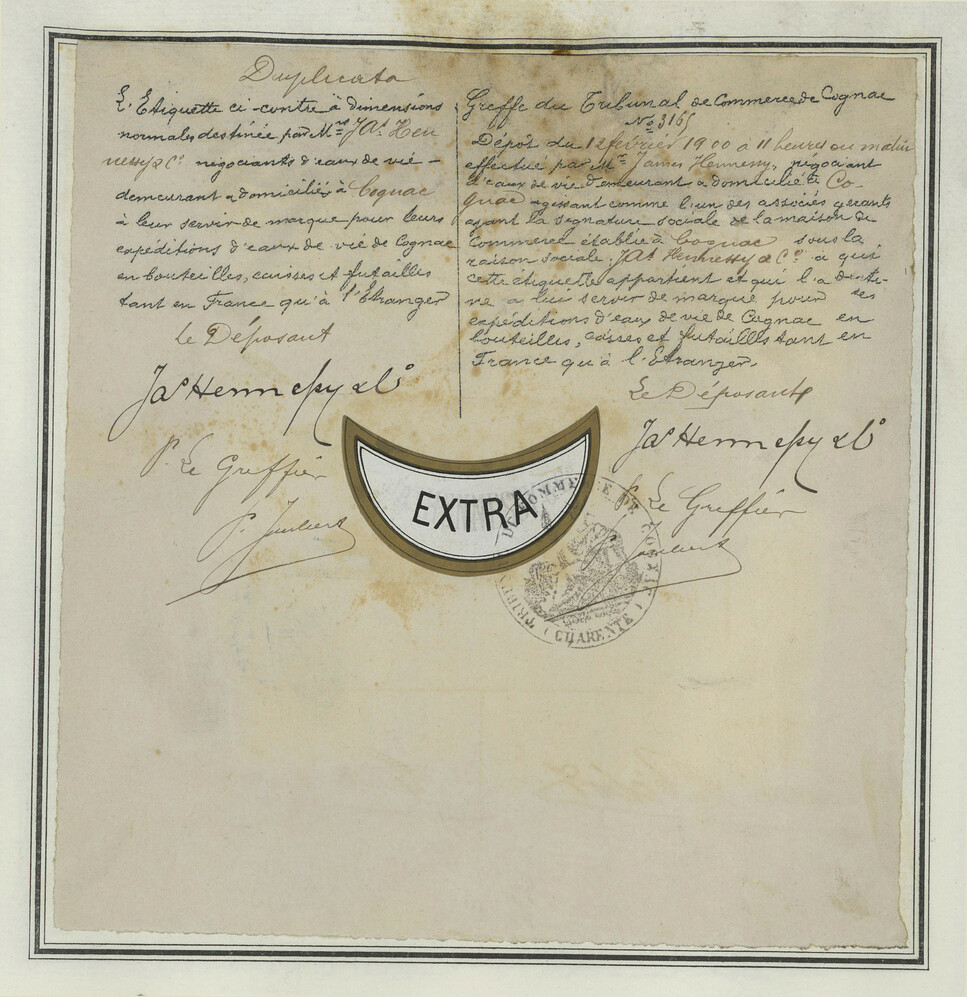 Duplicata
L'Etiquette ci-contre à dimensions
normales destinée par Mrs Jas Hen
nessy & Co négociants d'eaux de vie -
demeurant & domiciliés à Cognac
à leur servir de marque pour leurs
expéditions d'eaux de vie de Cognac
en bouteilles, caisses et futailles
tant en France qu'à l'Etranger
Le Déposant
Jas Hennessy & Co
P. Le Greffier
Greffe du Tribunal de Commerce de Cognac
No 3165
Dépôt du 12 février 1900 à 11 heures du matin
effectué par Mr James Hennessy, négociant
d'eaux de vie demeurant & domicilié à Co-
gnac agissant comme l'un des associés gérants
ayant la signature sociale de la maison de
Commerce établie à Cognac sous la
raison sociale Jas Hennessy & Co à qui
cette étiquette appartient et qui l'a desti-
né à lui servir de marque pour ses
expéditions d'eaux de vie de Cognac en
bouteilles, caisses et futailles tant en
France qu'à l'Etranger.
Le Déposant
Jas Hennessy & Co
P. Le Greffier
EXTRA
TRIBUNAL DE COMMERCE DE COGNAC
(CHARENTE)